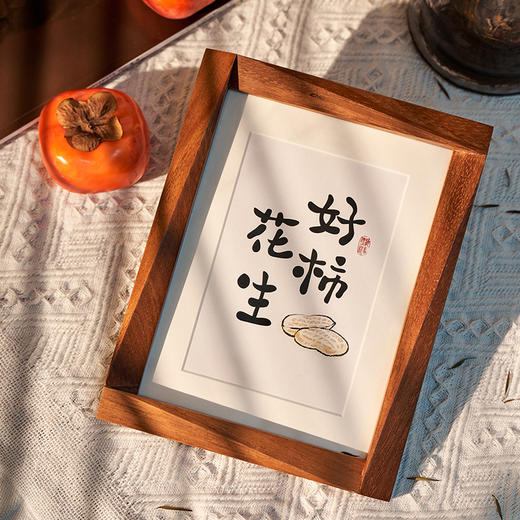 好柿
花生